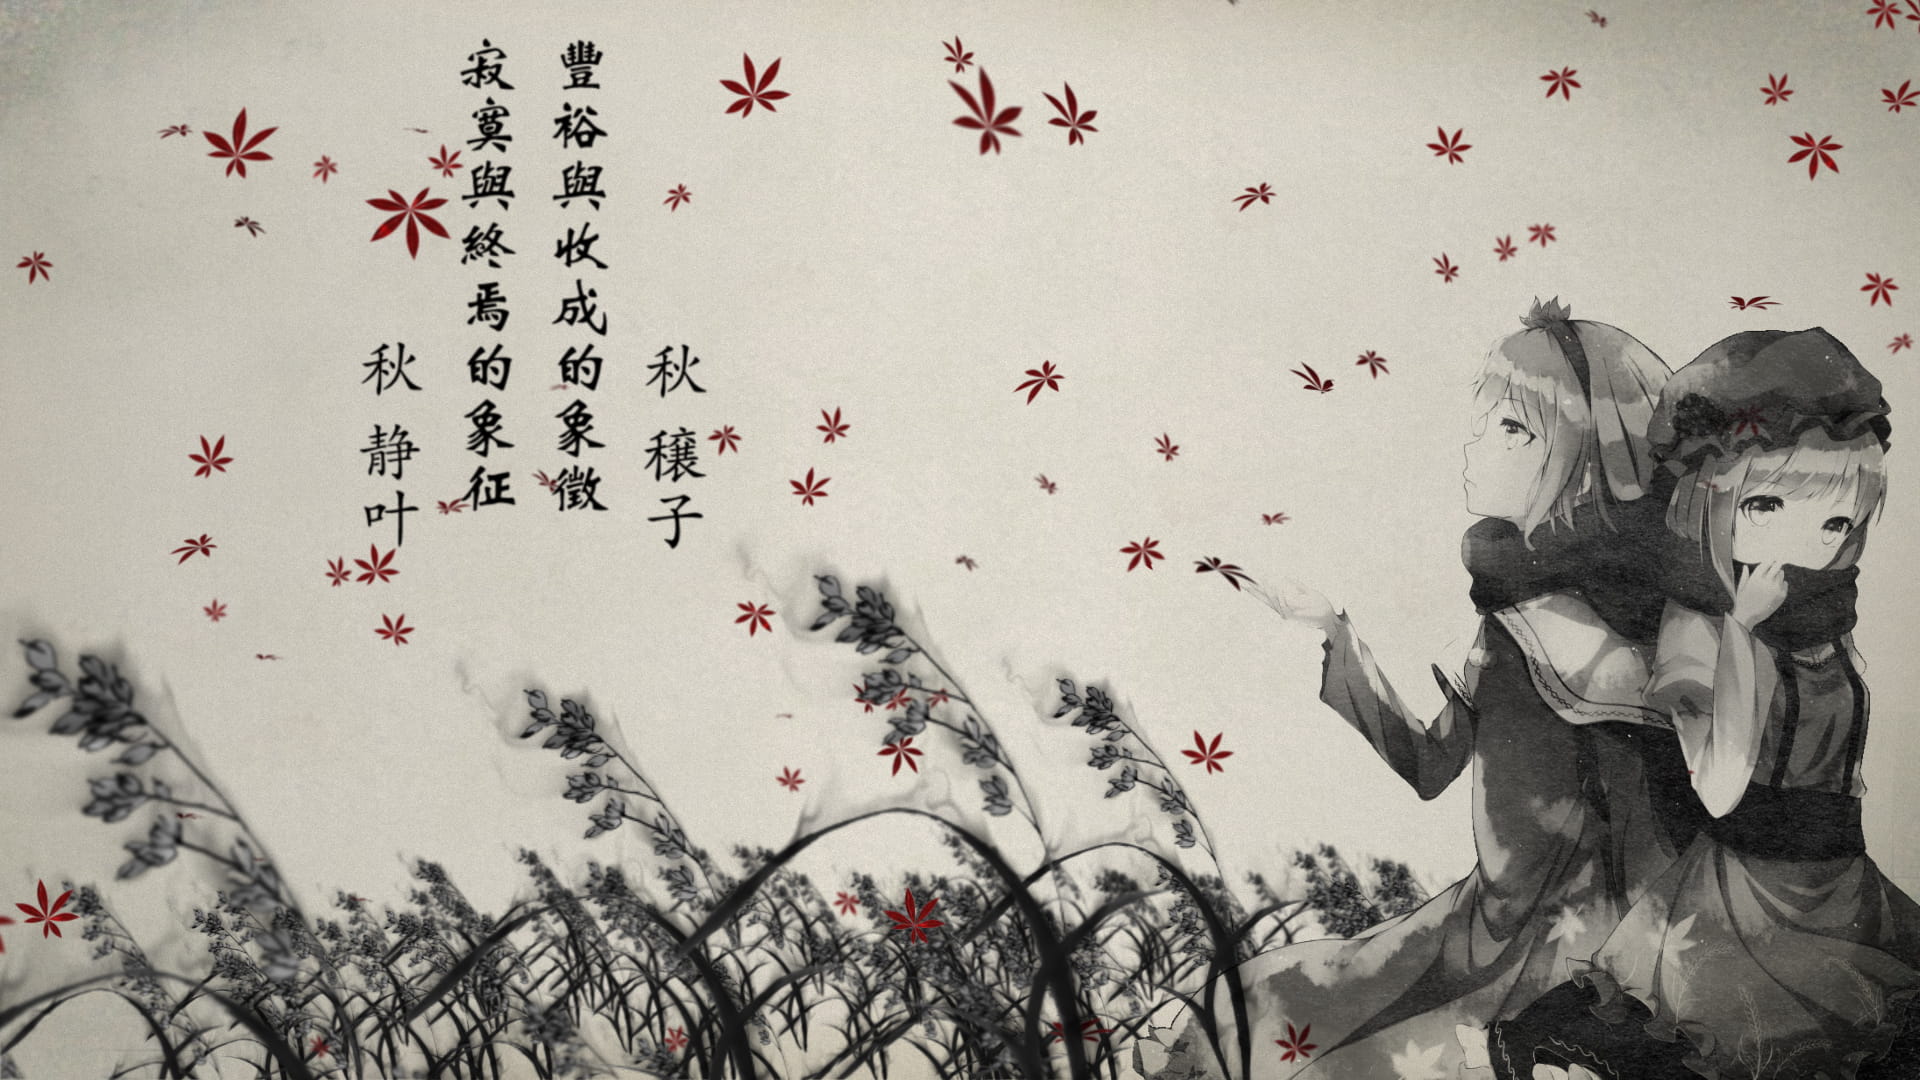 秋穰子
豐裕與收成的象徵
寂寞與終焉的象征
秋静叶